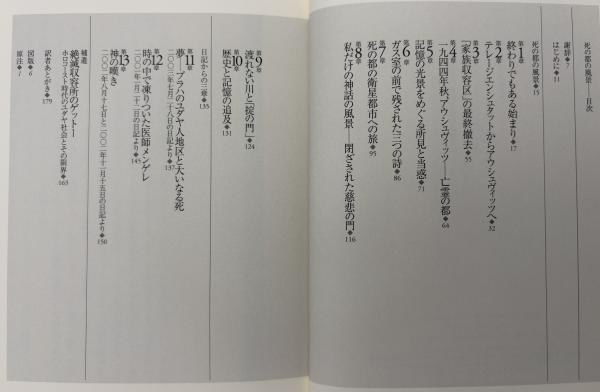 死の都の風景——目次
謝辞◆7
はじめに◆11
死の都の風景◆15
第1章 終わりでもある始まり◆17
第2章 テレージエンシュタットからアウシュヴィッツへ◆32
第3章 「家族収容区」の最終撤去◆55
第4章 一九四四年秋、アウシュヴィッツ——亡霊の都◆64
第5章 記憶の光景をめぐる所見と当惑◆71
第6章 ガス室の前で残された三つの詩◆86
第7章 死の都の衛星都市への旅◆95
第8章 私だけの神話の風景——閉ざされた慈悲の門◆116
第9章 渡れない川と「掟の門」◆124
第10章 歴史と記憶の追及◆131
日記からの三章◆135
第11章 夢——プラハのユダヤ人地区と大いなる死
二〇〇三年七月二十八日の日記より◆137
第12章 時の中で凍りついた医師メンゲレ
二〇〇一年一月二十二日の日記より◆145
第13章 神の嘆き
二〇〇二年八月十七日と二〇〇二年十一月十五日の日記より◆150
補遺
絶滅収容所のゲットー
ホロコースト時代のユダヤ社会とその限界◆163
訳者あとがき◆179
図版◆6
原注◆1